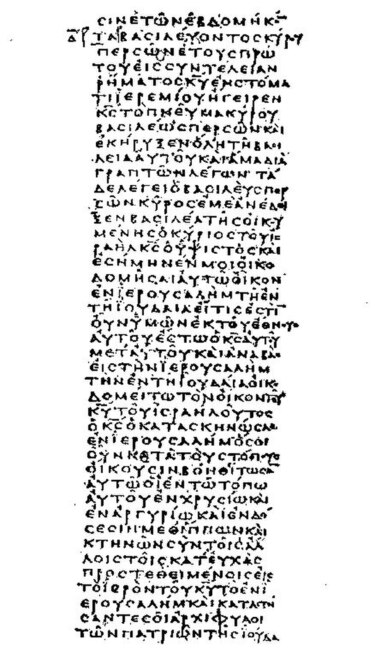 ϹΙΝΕΤΩΝΕΒΔΟΜΗΚΟ
ΤΑΒΑϹΙΛΕΥΟΝΤΟϹΚΥΡΟΥ
ΠΕΡϹΩΝΕΤΟΥϹΠΡΩ
ΤΟΥΕΙϹϹΥΝΤΕΛΕΙΑΝ
ΡΗΜΑΤΟϹΚΥΕΝϹΤΟΜΑ
ΤΙΙΕΡΕΜΙΟΥΗΓΕΙΡΕΝ
ΚϹΤΟΠΝΕΥΜΑΚΥΡΟΥ
ΒΑϹΙΛΕΩϹΠΕΡϹΩΝΚΑΙ
ΕΚΗΡΥΞΕΝΟΛΗΤΗΒΑϹΙ
ΛΕΙΑΑΥΤΟΥΚΑΙΑΜΑΔΙΑ
ΓΡΑΠΤΩΝΛΕΓΩΝΤΑ
ΔΕΛΕΓΕΙΟΒΑϹΙΛΕΥϹΠΕΡ
ϹΩΝΚΥΡΟϹΕΜΕΑΝΕΔΕΙ
ΞΕΝΒΑϹΙΛΕΑΤΗϹΟΙΚΟΥ
ΜΕΝΗϹΟΚΥΡΙΟϹΤΟΥΙϹ
ΡΑΗΛΚϹΟΥΨΙϹΤΟϹΚΑΙ
ΕϹΗΜΗΝΕΝΜΟΙΟΙΚΟ
ΔΟΜΗϹΑΙΑΥΤΩΟΙΚΟΝ
ΕΝΙΕΡΟΥϹΑΛΗΜΤΗΕΝ
ΤΗΙΟΥΔΑΙΑΕΙΤΙϹΕϹΤΙ
ΟΥΝΥΜΩΝΕΚΤΟΥΕΘΝΟΥϹ
ΑΥΤΟΥΕϹΤΩΟΚϹΑΥΤΟΥ
ΜΕΤΑΥΤΟΥΚΑΙΑΝΑΒΑϹ
ΕΙϹΤΗΝΙΕΡΟΥϹΑΛΗΜ
ΤΗΝΕΝΤΗΙΟΥΔΑΙΑΟΙΚΟ
ΔΟΜΕΙΤΩΤΟΝΟΙΚΟΝΤΟΥ
ΚΥΤΟΥΙϹΡΑΗΛΟΥΤΟϹ
ΟΚϹΟΚΑΤΑϹΚΗΝΩϹΑϹ
ΕΝΙΕΡΟΥϹΑΛΗΜΟϹΟΙ
ΟΥΝΚΑΤΑΤΟΥϹΤΟΠΟΥϹ
ΟΙΚΟΥϹΙΝΒΟΗΘΙΤΩϹΑΝ
ΑΥΤΩΟΙΕΝΤΩΤΟΠΩ
ΑΥΤΟΥΕΝΧΡΥϹΙΩΚΑΙ
ΕΝΑΡΓΥΡΙΩΚΑΙΕΝΔΟ
ϹΕϹΙΝΜΕΘΙΠΠΩΝΚΑΙ
ΚΤΗΝΩΝϹΥΝΤΟΙϹΑΛ
ΛΟΙϹΤΟΙϹΚΑΤΕΥΧΑϹ
ΠΡΟϹΤΕΘΕΙΜΕΝΟΙϹΕΙϹ
ΤΟΙΕΡΟΝΤΟΥΚΥΤΟΕΝΙ
ΕΡΟΥϹΑΛΗΜΚΑΙΚΑΤΑϹΤΗ
ϹΑΝΤΕϹΟΙΑΡΧΙΦΥΛΟΙ
ΤΩΝΠΑΤΡΙΩΝΤΗϹΙΟΥΔΑ